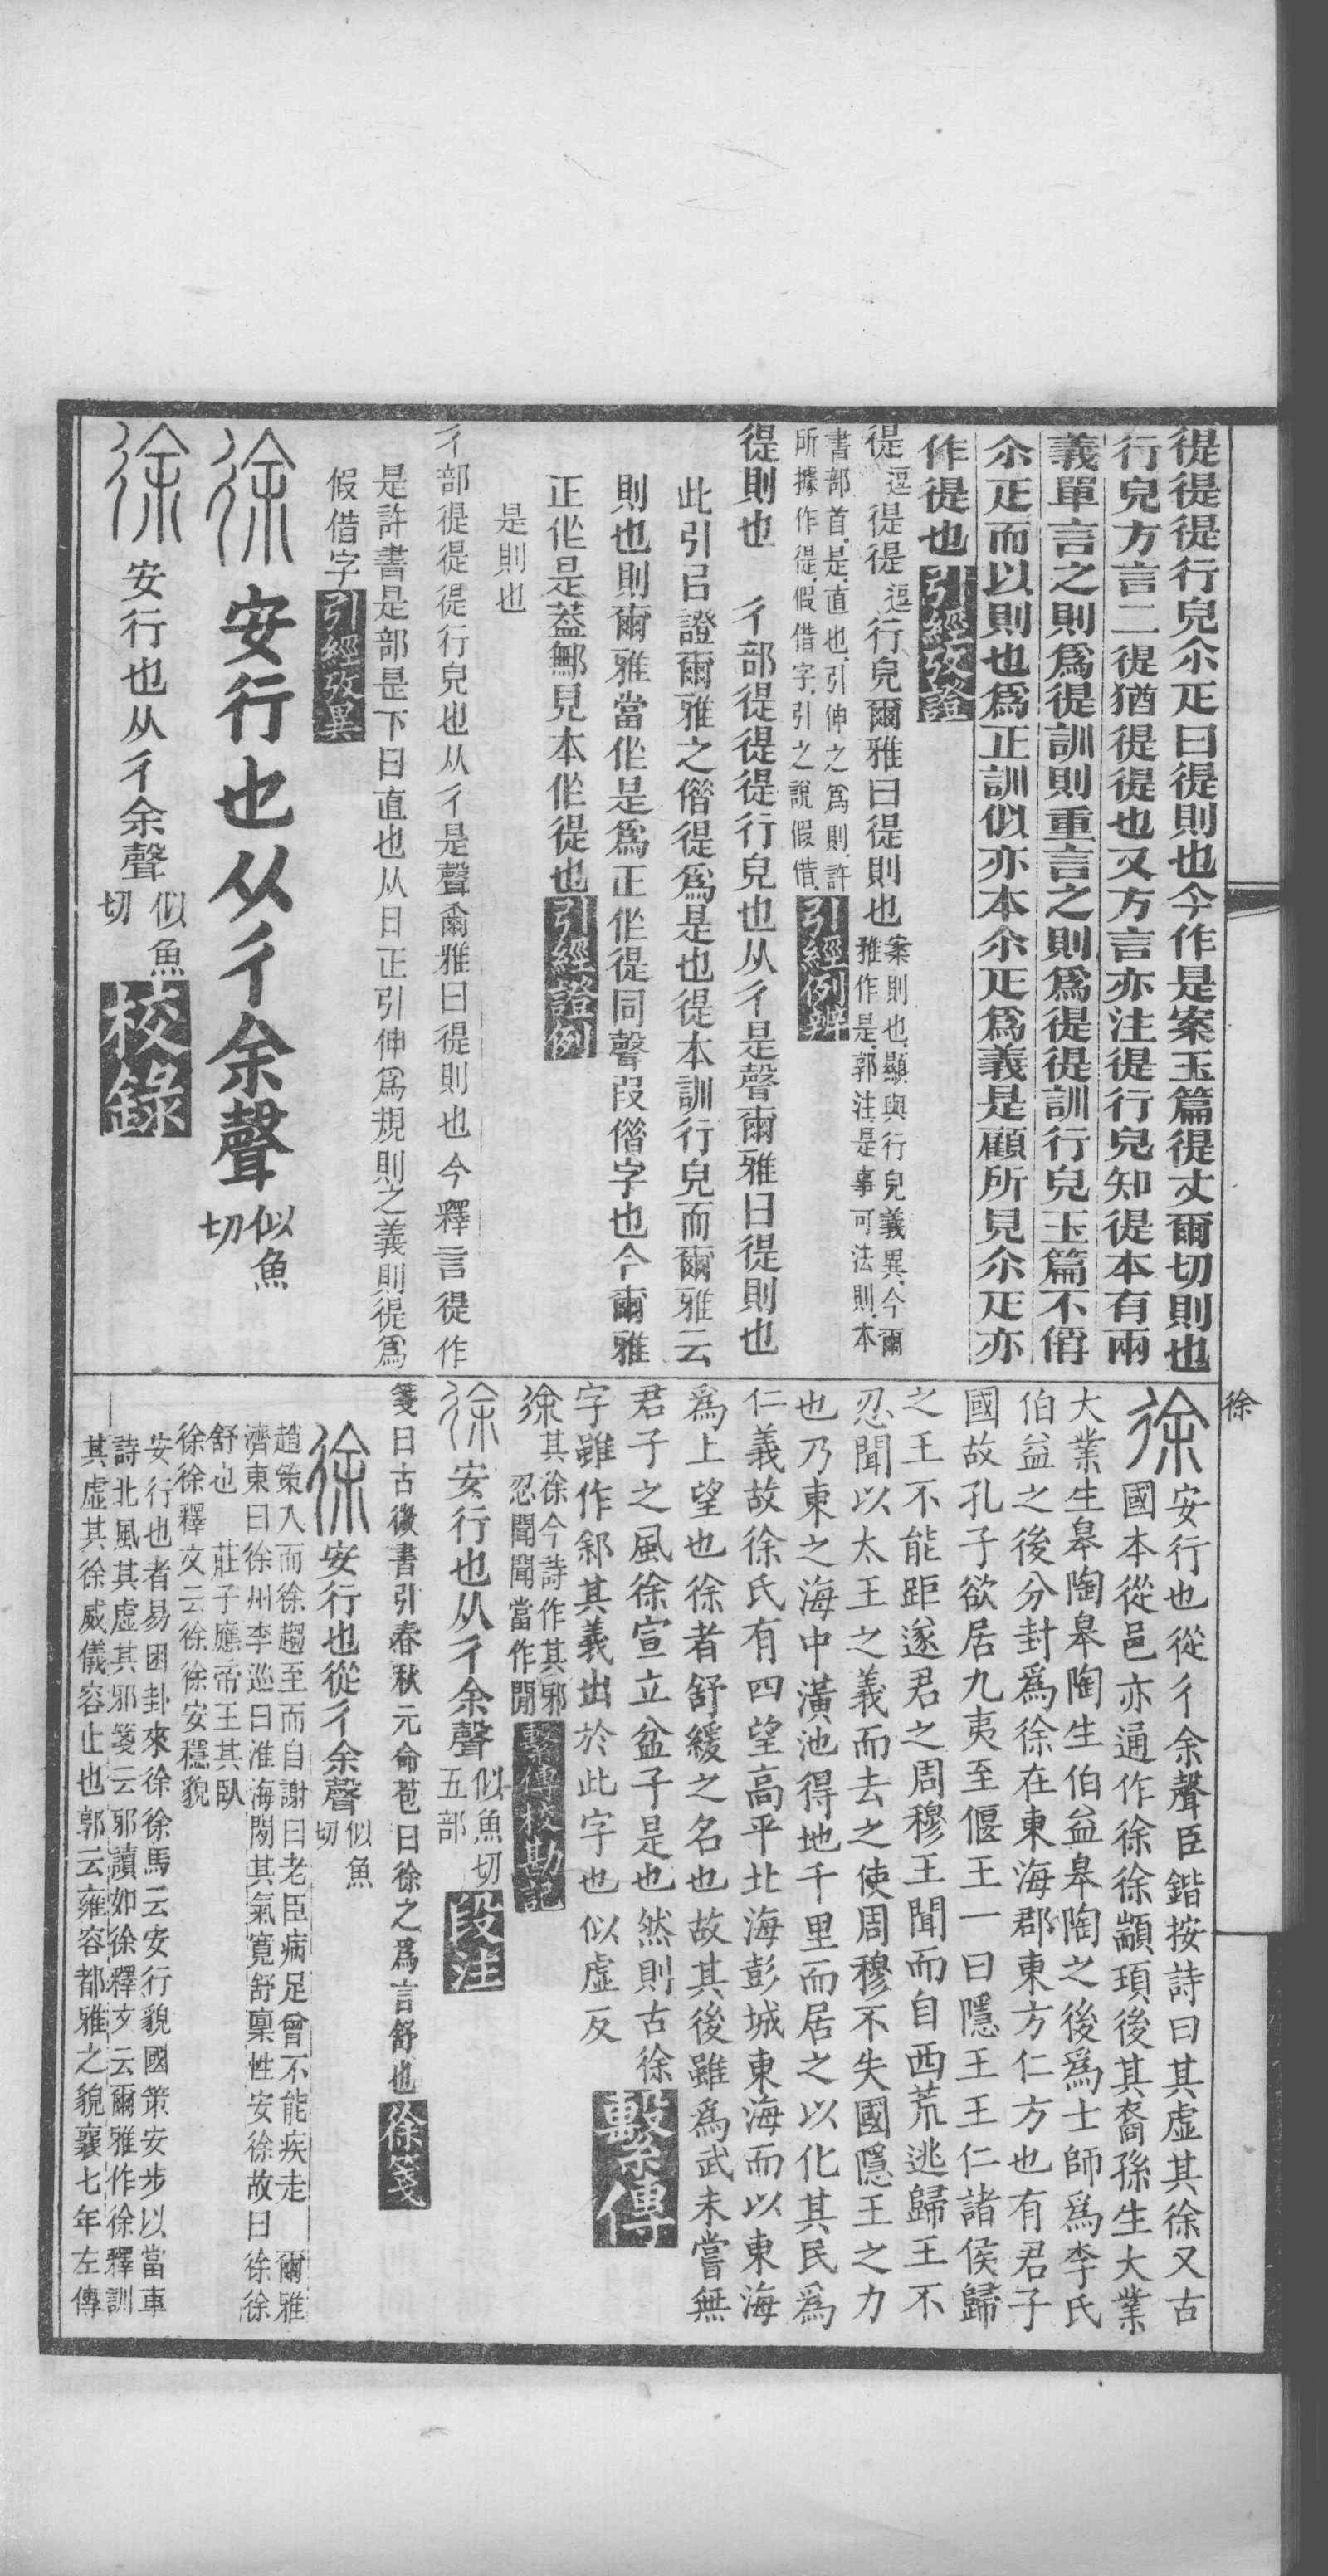 徥徥徥行皃尒疋曰徥則也今作是案玉篇徥丈爾切則也
行皃方言二徥猶徥徥也又方言亦注徥行皃知徥本有兩
義單言之則爲徥訓則重言之則爲徥徥訓行皃玉篇不偁
尒疋而以則也爲正訓似亦本尒疋爲義是顧所見尒疋亦
作徥也引經攷證
徥逗徥徥逗行皃爾雅曰徥則也案則也顯與行皃義異今爾
雅作是郭注是事可法則本
書部首是直也引伸之爲則許
所據作徥假借字引之說假借引經例辨
徥則也 彳部徥徥徥行皃也从彳是聲爾雅曰徥則也
此引㠯證爾雅之偺徥爲是也徥本訓行皃而爾雅云
則也則爾雅當作是爲正作徥同聲叚偺字也今爾雅
正作是葢鄦見本作徥也引經證例
是則也
彳部徥徥徥行皃也从彳是聲爾雅曰徥則也今釋言徥作
是許書是部是下曰直也从日正引伸爲規則之義則徥爲
假借字引經攷異
徐安行也从彳余聲似魚
切
徐安行也从彳余聲似魚
切校錄
徐
徐安行也從彳余聲臣鍇按詩曰其虛其徐又古
國本從邑亦通作徐徐顓頊後其裔孫生大業
大業生皋陶皋陶生伯益皋陶之後爲士師爲李氏
伯益之後分封爲徐在東海郡東方仁方也有君子
國故孔子欲居九夷至偃王一曰隱王王仁諸侯歸
之王不能距遂君之周穆王聞而自西荒逃歸王不
忍聞以太王之義而去之使周穆不失國隱王之力
也乃東之海中潢池得地千里而居之以化其民爲
仁義故徐氏有四望高平北海彭城東海而以東海
爲上望也徐者舒緩之名也故其後雖爲武未嘗無
君子之風徐宣立盆子是也然則古徐
字雖作䣄其義出於此字也似虛反繫傳
徐其徐今詩作其邪
忍聞聞當作閒繫傳校勘記
徐安行也从彳余聲似魚切
五部段注
箋曰古微書引春秋元命苞曰徐之爲言舒也徐箋
徐安行也從彳余聲似魚
切
趙策入而徐趨至而自謝曰老臣病足曾不能疾走 爾雅
濟東曰徐州李巡曰淮海閒其氣寬舒稟性安徐故曰徐徐
舒也 莊子應帝王其臥
徐徐釋文云徐徐安穩貌
安行也者易困卦來徐徐馬云安行貌國策安步以當車
詩北風其虛其邪箋云邪讀如徐釋文云爾雅作徐釋訓
其虛其徐威儀容止也郭云雍容都雅之貌襄七年左傳